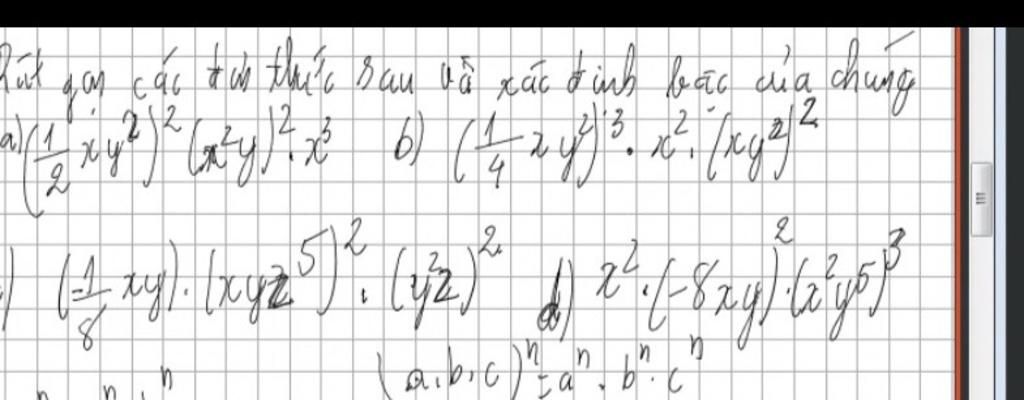 Rút gọn các đơn thức sau và xác định bậc của chúng
a) (1/2 xy²)² (x²y)² . x³ b) (1/4 xy²)³ . x² . (xy²)²
) (-1/8 xy) . (xyz⁵)² . (y²z)² d) x² . (-8xy)² . (x²y⁵)³
(a.b.c)ⁿ = aⁿ . bⁿ . cⁿ